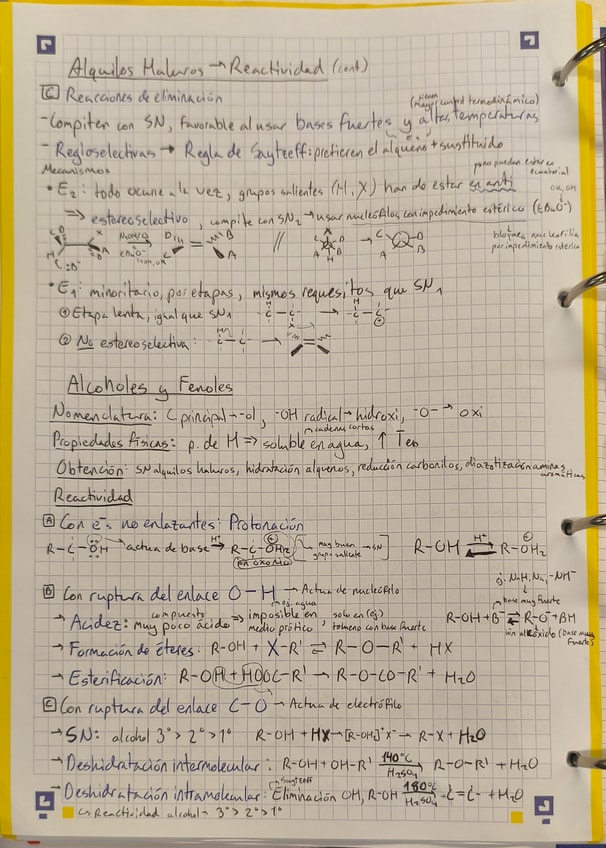 Alquilos Haluros → Reactividad (cont)
C Reacciones de eliminación
(tienen mayor control termodinámico)
- Compiten con SN, favorable al usar bases fuertes y altas temperaturas
- Regioselectivas → Regla de Saytzeff: prefieren el alqueno + sustituido
Mecanismos
para puedan estar en ecuatorial
• E2: todo ocurre a la vez, grupos salientes (H, X) han de estar en anti
⇒ estereoselectivo, compite con SN2 → usar nucleófilos con impedimento estérico (tBuO⁻)
bloquea nucleofilia por impedimento estérico
• E1: minoritario, por etapas, mismos requesitos que SN1
① Etapa lenta, igual que SN1
② No estereoselectiva:
Alcoholes y Fenoles
Nomenclatura: C principal → -ol, -OH radical → hidroxi, -O- → oxi
cadenas cortas
Propiedades físicas: p. de H ⇒ soluble en agua, ↑ Teb
Obtención: SN alquilos haluros, hidratación alquenos, reducción carbonilos, diazotización aminas aromáticas
Reactividad
A Con e⁻s no enlazantes: Protonación
R-C-OH actua de base H⁺ → R-C-OH2 ⊕ muy buen grupo saliente → SN R-OH ⇌ H⁺ R-OH2 ⊕
ión oxonio
B Con ruptura del enlace O-H → Actua de nucleófilo
ej. NaH, Na, -NH⁻
base muy fuerte
→ Acidez: compuesto muy poco ácido ⇒ imposible en medio prótico, ej. agua solo en (ej.) tolueno con base fuerte R-OH + B⁻ ⇌ R-O⁻ + BH
ión alcóxido (base muy fuerte)
→ Formación de éteres: R-OH + X-R' ⇌ R-O-R' + HX
→ Esterificación: R-OH + HOOC-R' → R-O-CO-R' + H2O
C Con ruptura del enlace C-O → Actua de electrófilo
→ SN: alcohol 3° > 2° > 1° R-OH + HX → [R-OH2]⁺X⁻ → R-X + H2O
→ Deshidratación intermolecular: R-OH + OH-R' 140°C H2SO4 → R-O-R' + H2O
Saytzeff
→ Deshidratación intramolecular: Eliminación OH, R-OH 180°C H2SO4 -C=C- + H2O
↳ Reactividad alcohol → 3° > 2° > 1°